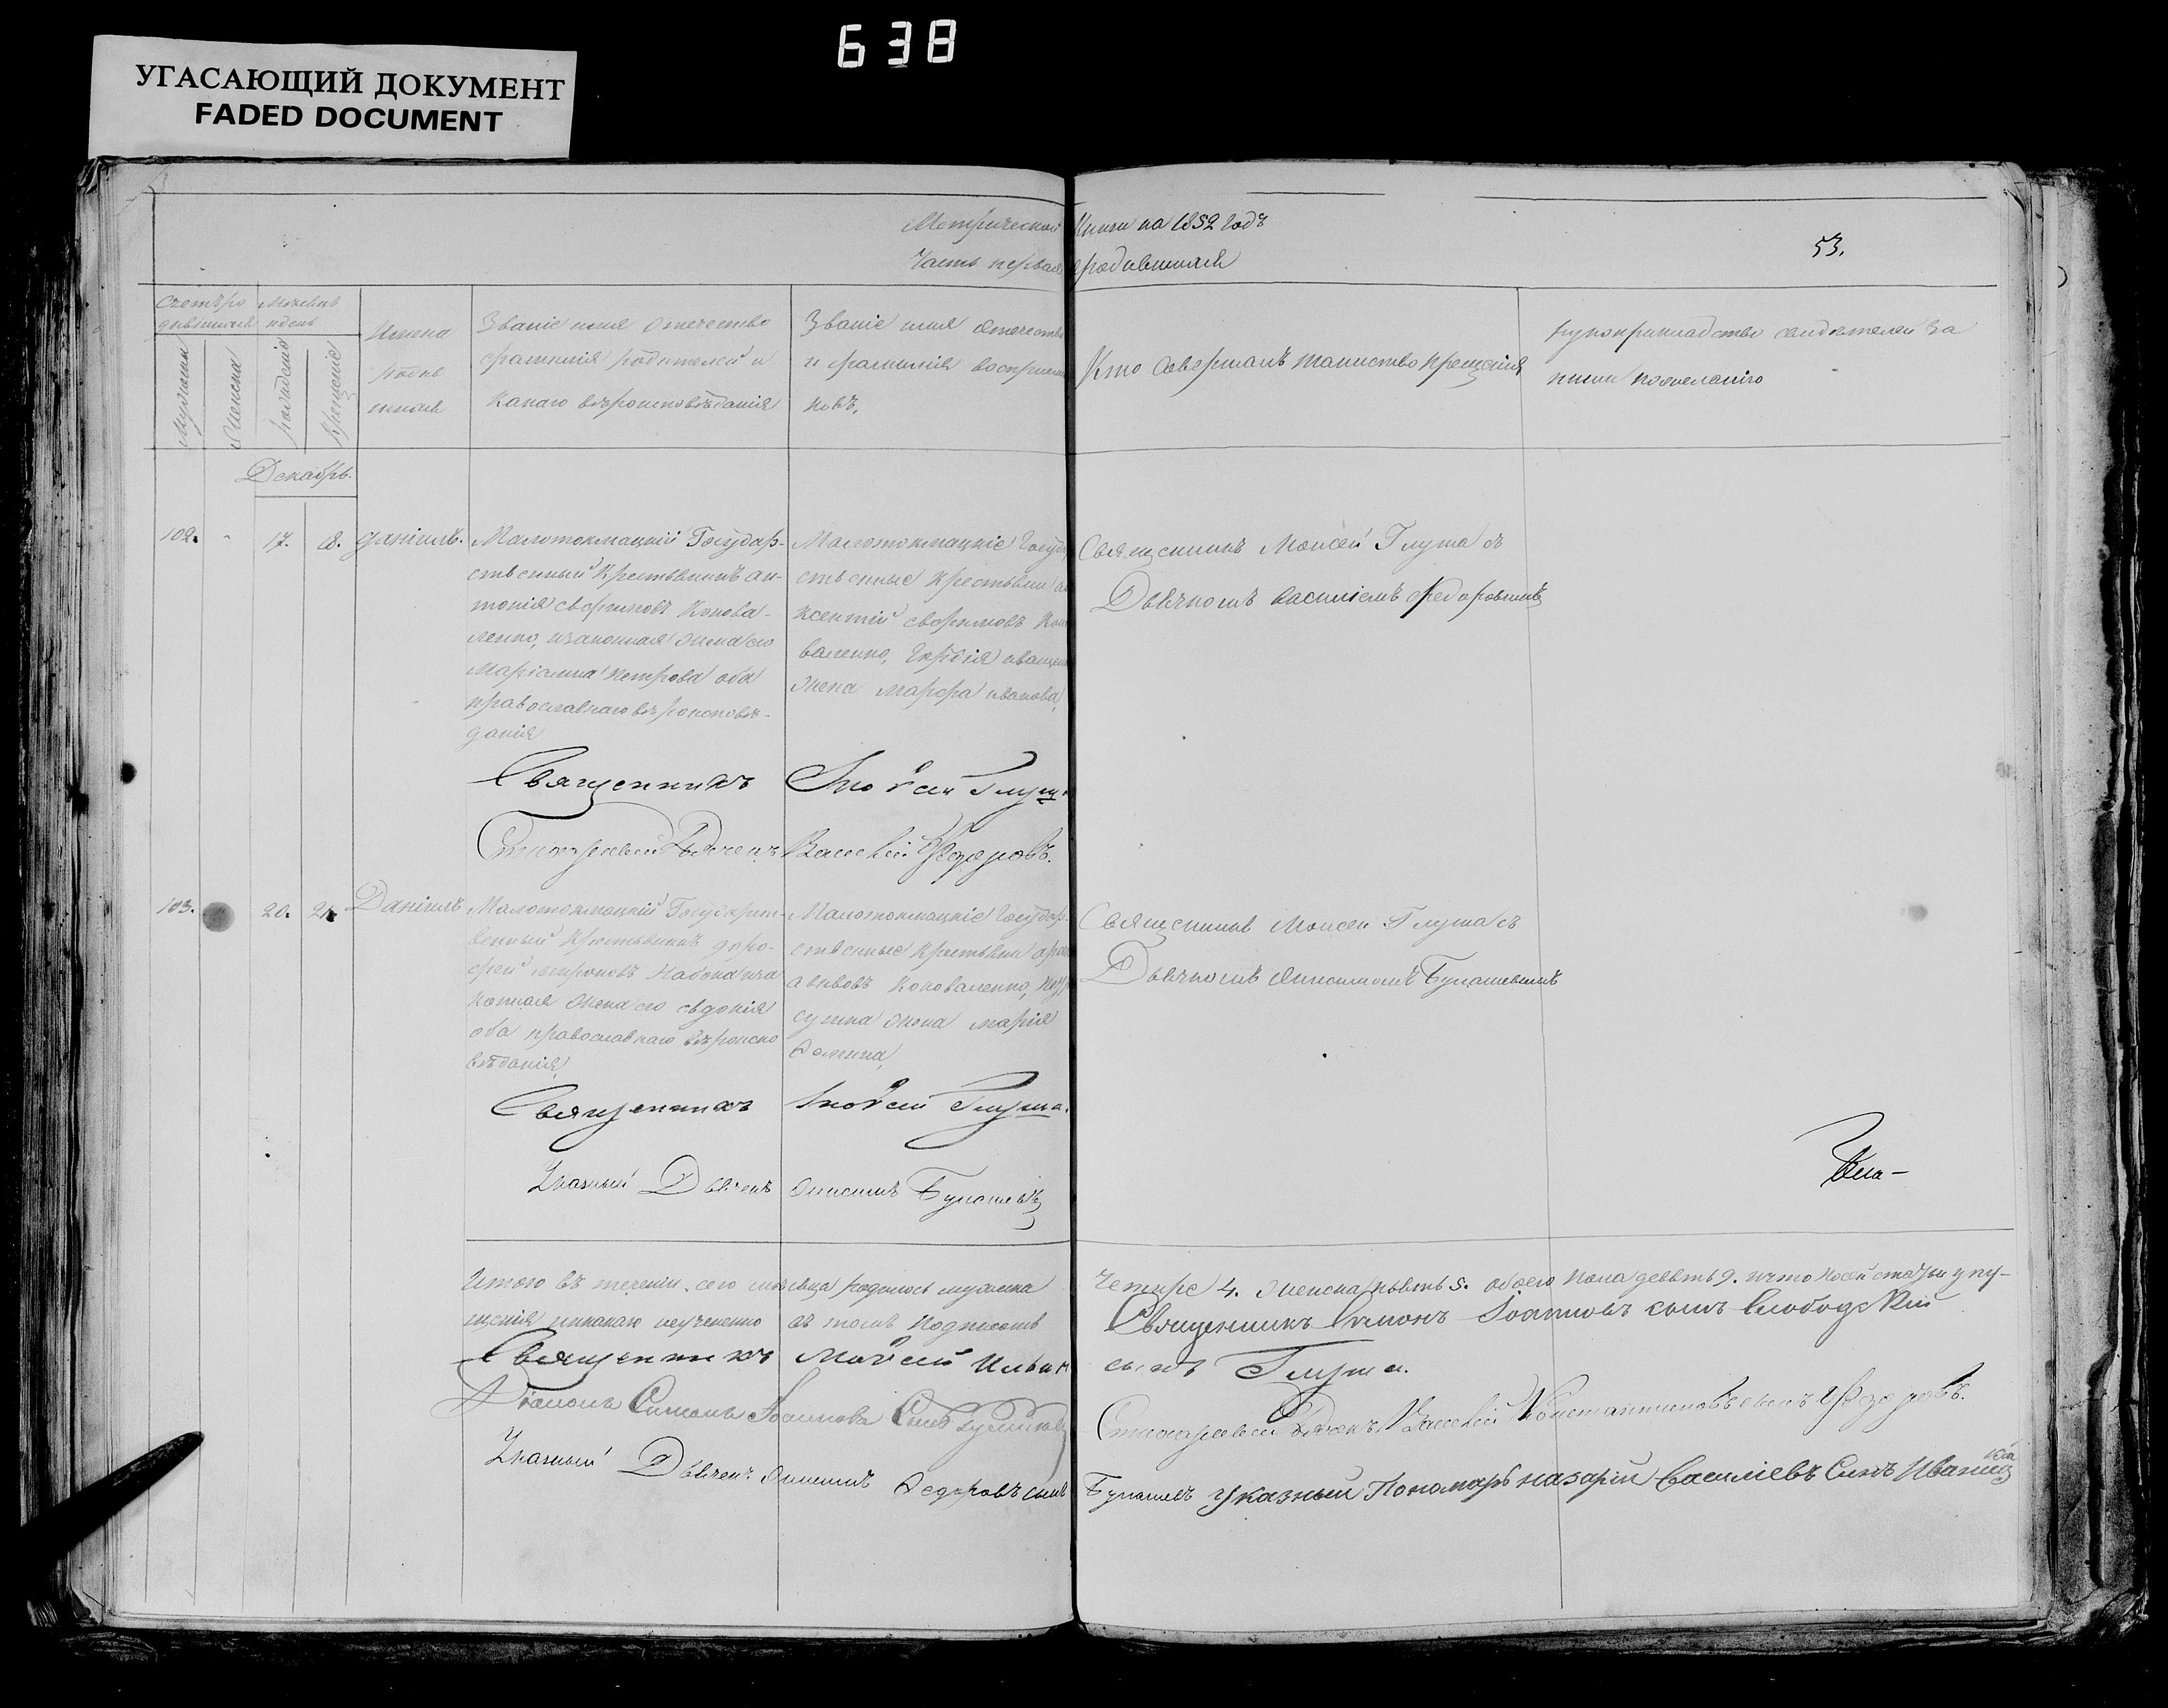 638
УГАСАЮЩИЙ ДОКУМЕНТ
FADED DOCUMENT
Метрической Книги на 1852 годъ
53.
Часть первая о родившихся
Счетъ ро
дившихся
Мѣсяцъ
и день
Мужеска
Женска
рожденія
Крещенія
Имена
родив
шихся
Званіе имя отечество
фамилія родителей и
какаго вѣроисповѣданія
Званіе имя отечество
и фамилія воспріем
никовъ,
Кто совершалъ таинство Крещенія
рукоприкладство свидѣтелей за
писи по желанію
Декабрь.
102. - 17. 18. Даніилъ.
Малотокмацкій Государ-
ственный Крестьянинъ Ан-
тоній Ефимовъ Конова-
ленко, и законная жена его
Маріанна Петрова оба
православнаго вѣроисповѣ-
данія
Малотокмацкіе Госуд
ственные Крестьяни а
ксентій Ефимовъ Ко
валенко, иващен
жена Марфа иванова,
Священникъ Моисей Глуша съ
Дьячкомъ Василіемъ Федоровымъ
Священникъ Моисей Глуша
Дьячекъ Василій Федоровъ.
103. 20. 21. Даніилъ
Малотокмацкій Государст-
венный Крестьянинъ Доро-
фей Мироновъ Набока и за
конная жена его Евдокія
оба православнаго вѣроиспо
вѣданія,
Малотокмацкіе Государ-
ственные Крестьяни
Коноваленко,
жена Марія
Фомина,
Священникъ Моисей Глуша съ
Дьячкомъ Онисимомъ Букашевымъ
Священникъ Моисей Глуша.
Указный Дьячекъ Онисимъ Букашевъ
Итого въ теченіи сего мѣсяца родилось мужеска четыре 4. женска пять 5. обоего пола девять 9. и что по сей статьи упу-
щенія никакаго неучиненно въ томъ подписомъ
Священникъ Симонъ Іоанновъ сынъ Слободскій
Священникъ Моисей Ильинъ сынъ Глуша.
Діаконъ Симеонъ Іоанновъ Сынъ
Дьячекъ Василій Константиновъ сынъ Федоровъ.
Указный Дьячекъ Онисимъ Федоровъ сынъ Букашевъ Указный Пономарь Назарій Василіевъ Сынъ Иваницкій